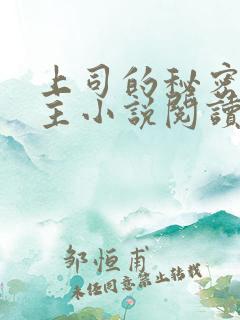 上司的秘密
主小説閱讀
邹恒甫
未经同意禁止转载